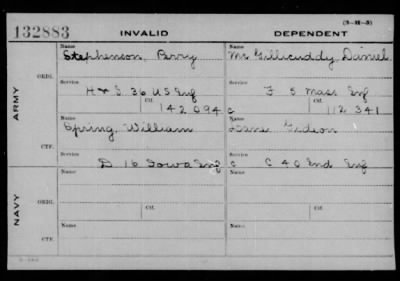 (3-11-5)
132883 INVALID DEPENDENT
Name Name
Stephenson, Perry McGillicuddy, Daniel
ORDI.
Service Service
H & S. 36 US Eng F 5 Mass Inf
Ctf. Ctf.
142094 c 112341
ARMY
Name Name
Spring, William Lane Gideon
CTF.
Service Service
D 16 Iowa Inf c C 40 Ind Inf
Name Name
ORDI.
Service Service
Ctf. Ctf.
NAVY
Name Name
CTF.
Service Service